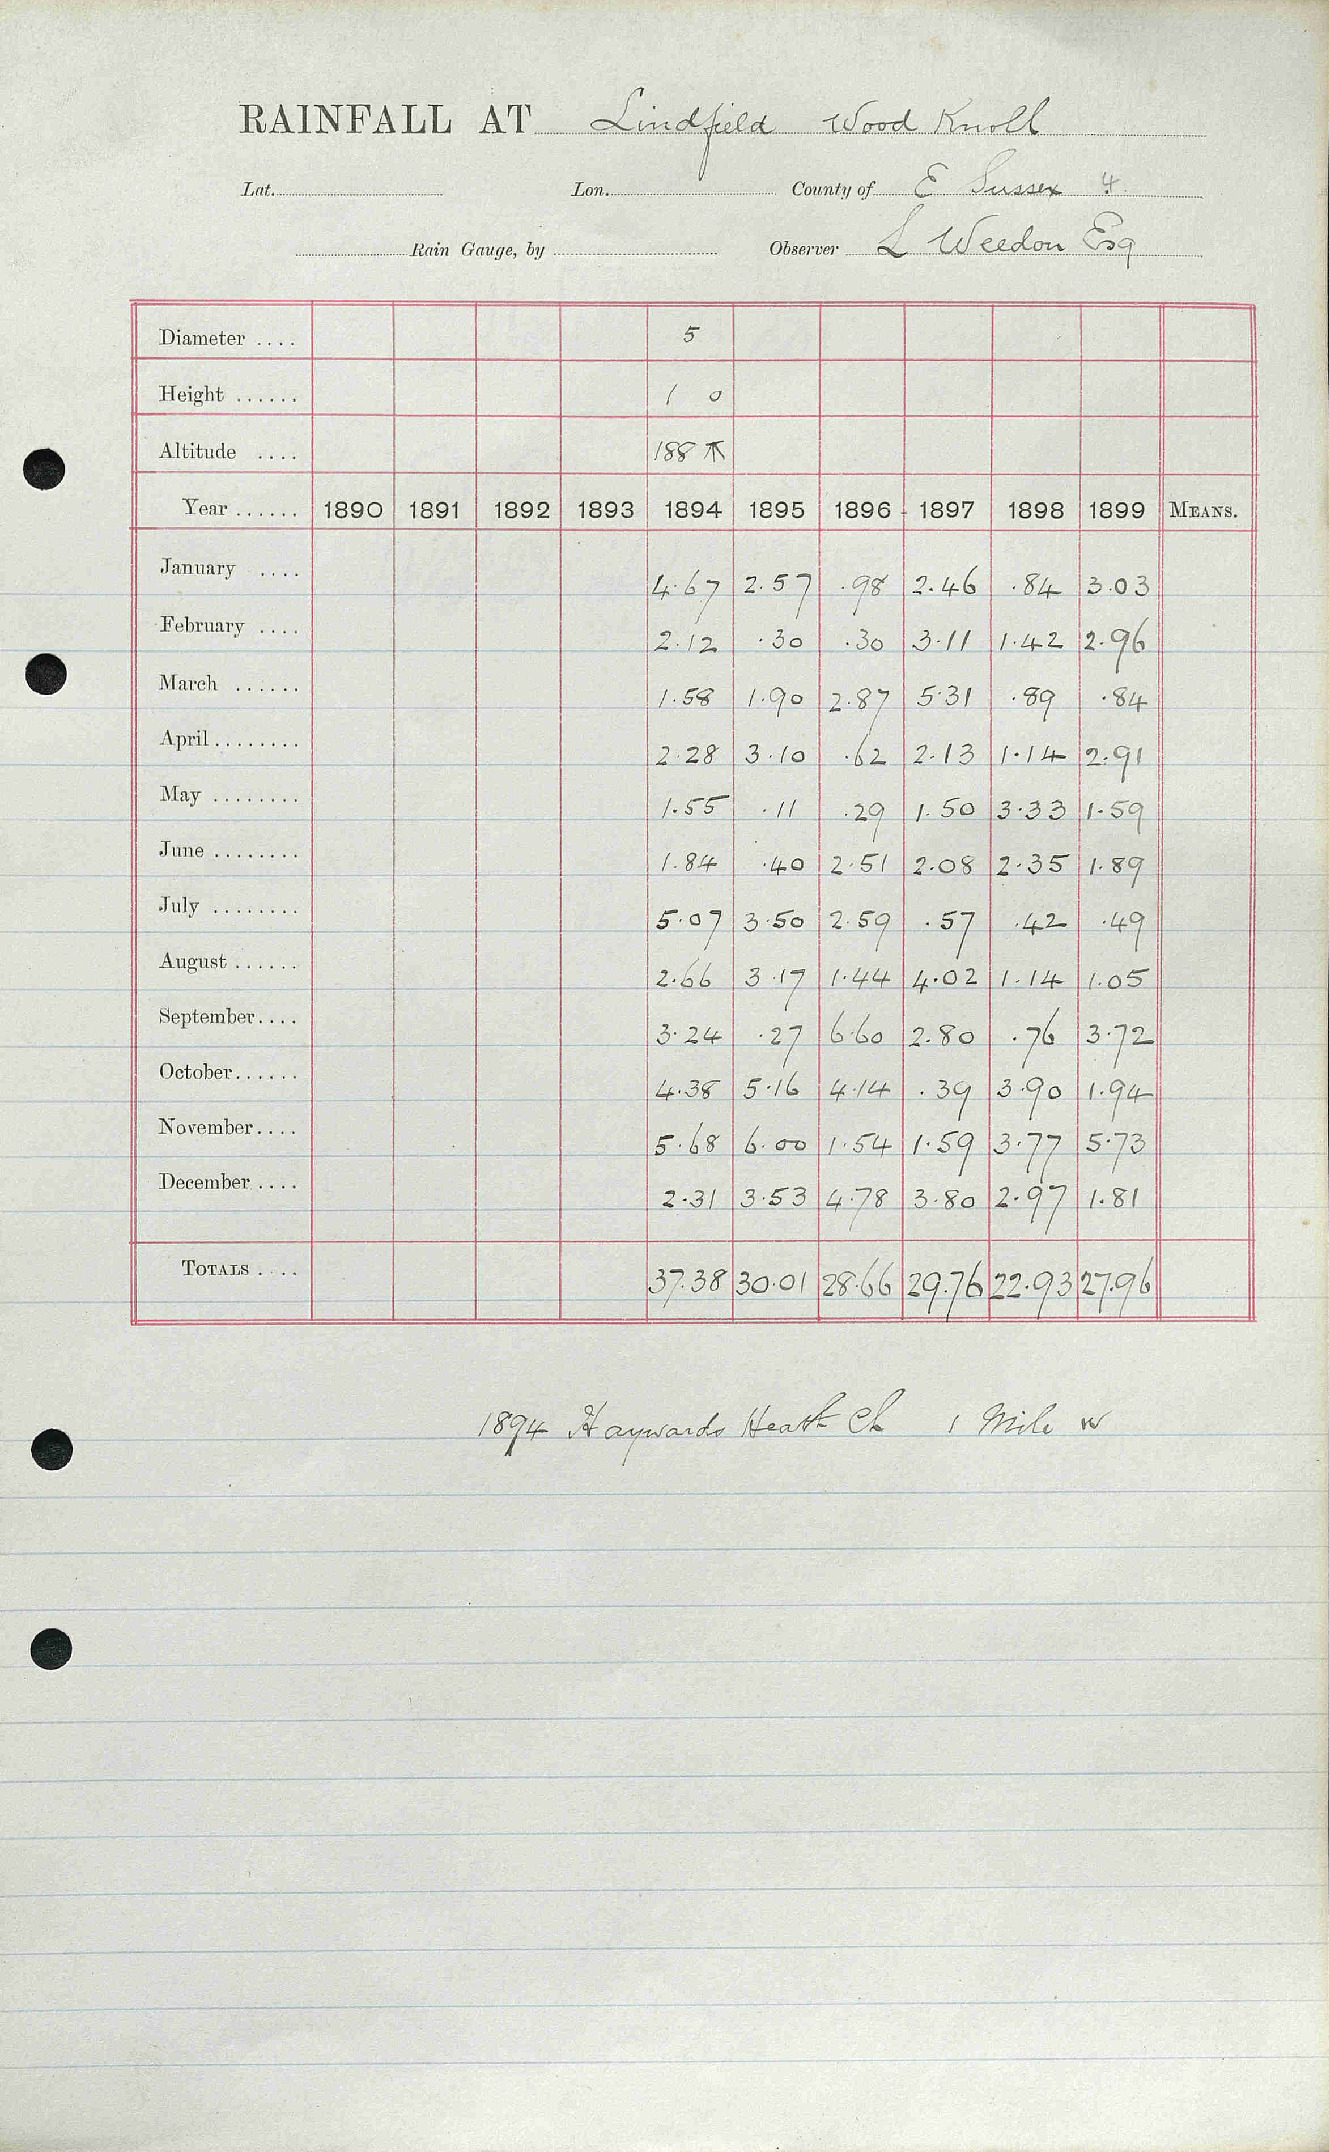 RAINFALL AT Lindfield Wood Knoll
Lat. Lon. County of E Sussex 4
Rain Gauge, by Observer L Weedon Esq
Diameter .... 5
Height ...... 1 0
Altitude .... 188
Year ...... 1890 1891 1892 1893 1894 1895 1896 1897 1898 1899 MEANS.
January .... 4.67 2.57 .98 2.46 .84 3.03
February .... 2.12 .30 .30 3.11 1.42 2.96
March ...... 1.58 1.90 2.87 5.31 .89 .84
April ........ 2.28 3.10 .62 2.13 1.14 2.91
May ........ 1.55 .11 .29 1.50 3.33 1.59
June ........ 1.84 .40 2.51 2.08 2.35 1.89
July ........ 5.07 3.50 2.59 .57 .42 .49
August ...... 2.66 3.17 1.44 4.02 1.14 1.05
September .... 3.24 .27 6.60 2.80 .76 3.72
October ...... 4.38 5.16 4.14 .39 3.90 1.94
November .... 5.68 6.00 1.54 1.59 3.77 5.73
December .... 2.31 3.53 4.78 3.80 2.97 1.81
TOTALS .... 37.38 30.01 28.66 29.76 22.93 27.96
1894 Haywards Heath Ch 1 Mile W